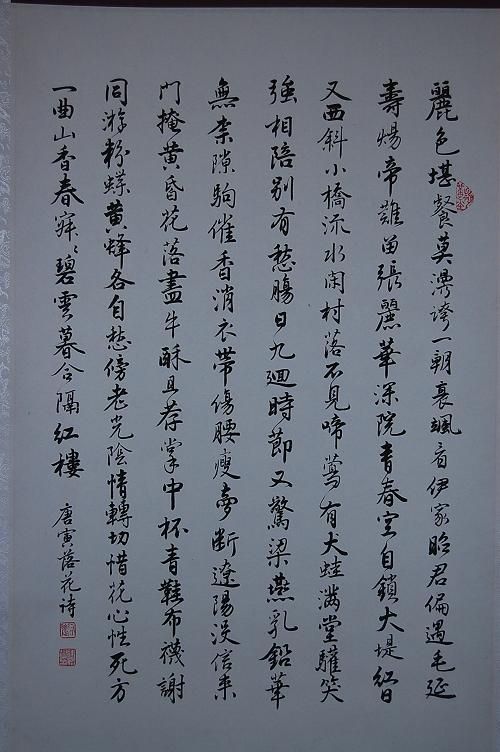 麗色堪餐莫漫誇一朝衰颯音伊家昭君偏遇毛延
壽煬帝難留張麗華深院青春空自鎖大堤紅日
又西斜小橋流水閑村落不見啼鶯有犬蛙滿堂驩笑
強相陪別有愁腸日九迴時節又驚梁燕乳鉛華
無柰隙駒催香消衣帶傷腰瘦夢斷遼陽沒信來
門掩黃昏花落盡牛酥且荐掌中杯青鞋布襪謝
同游粉蝶黃蜂各自愁傍老光陰情轉切惜花心性死方
一曲山香春寂ゝ碧雲暮合隔紅樓
唐寅落花詩